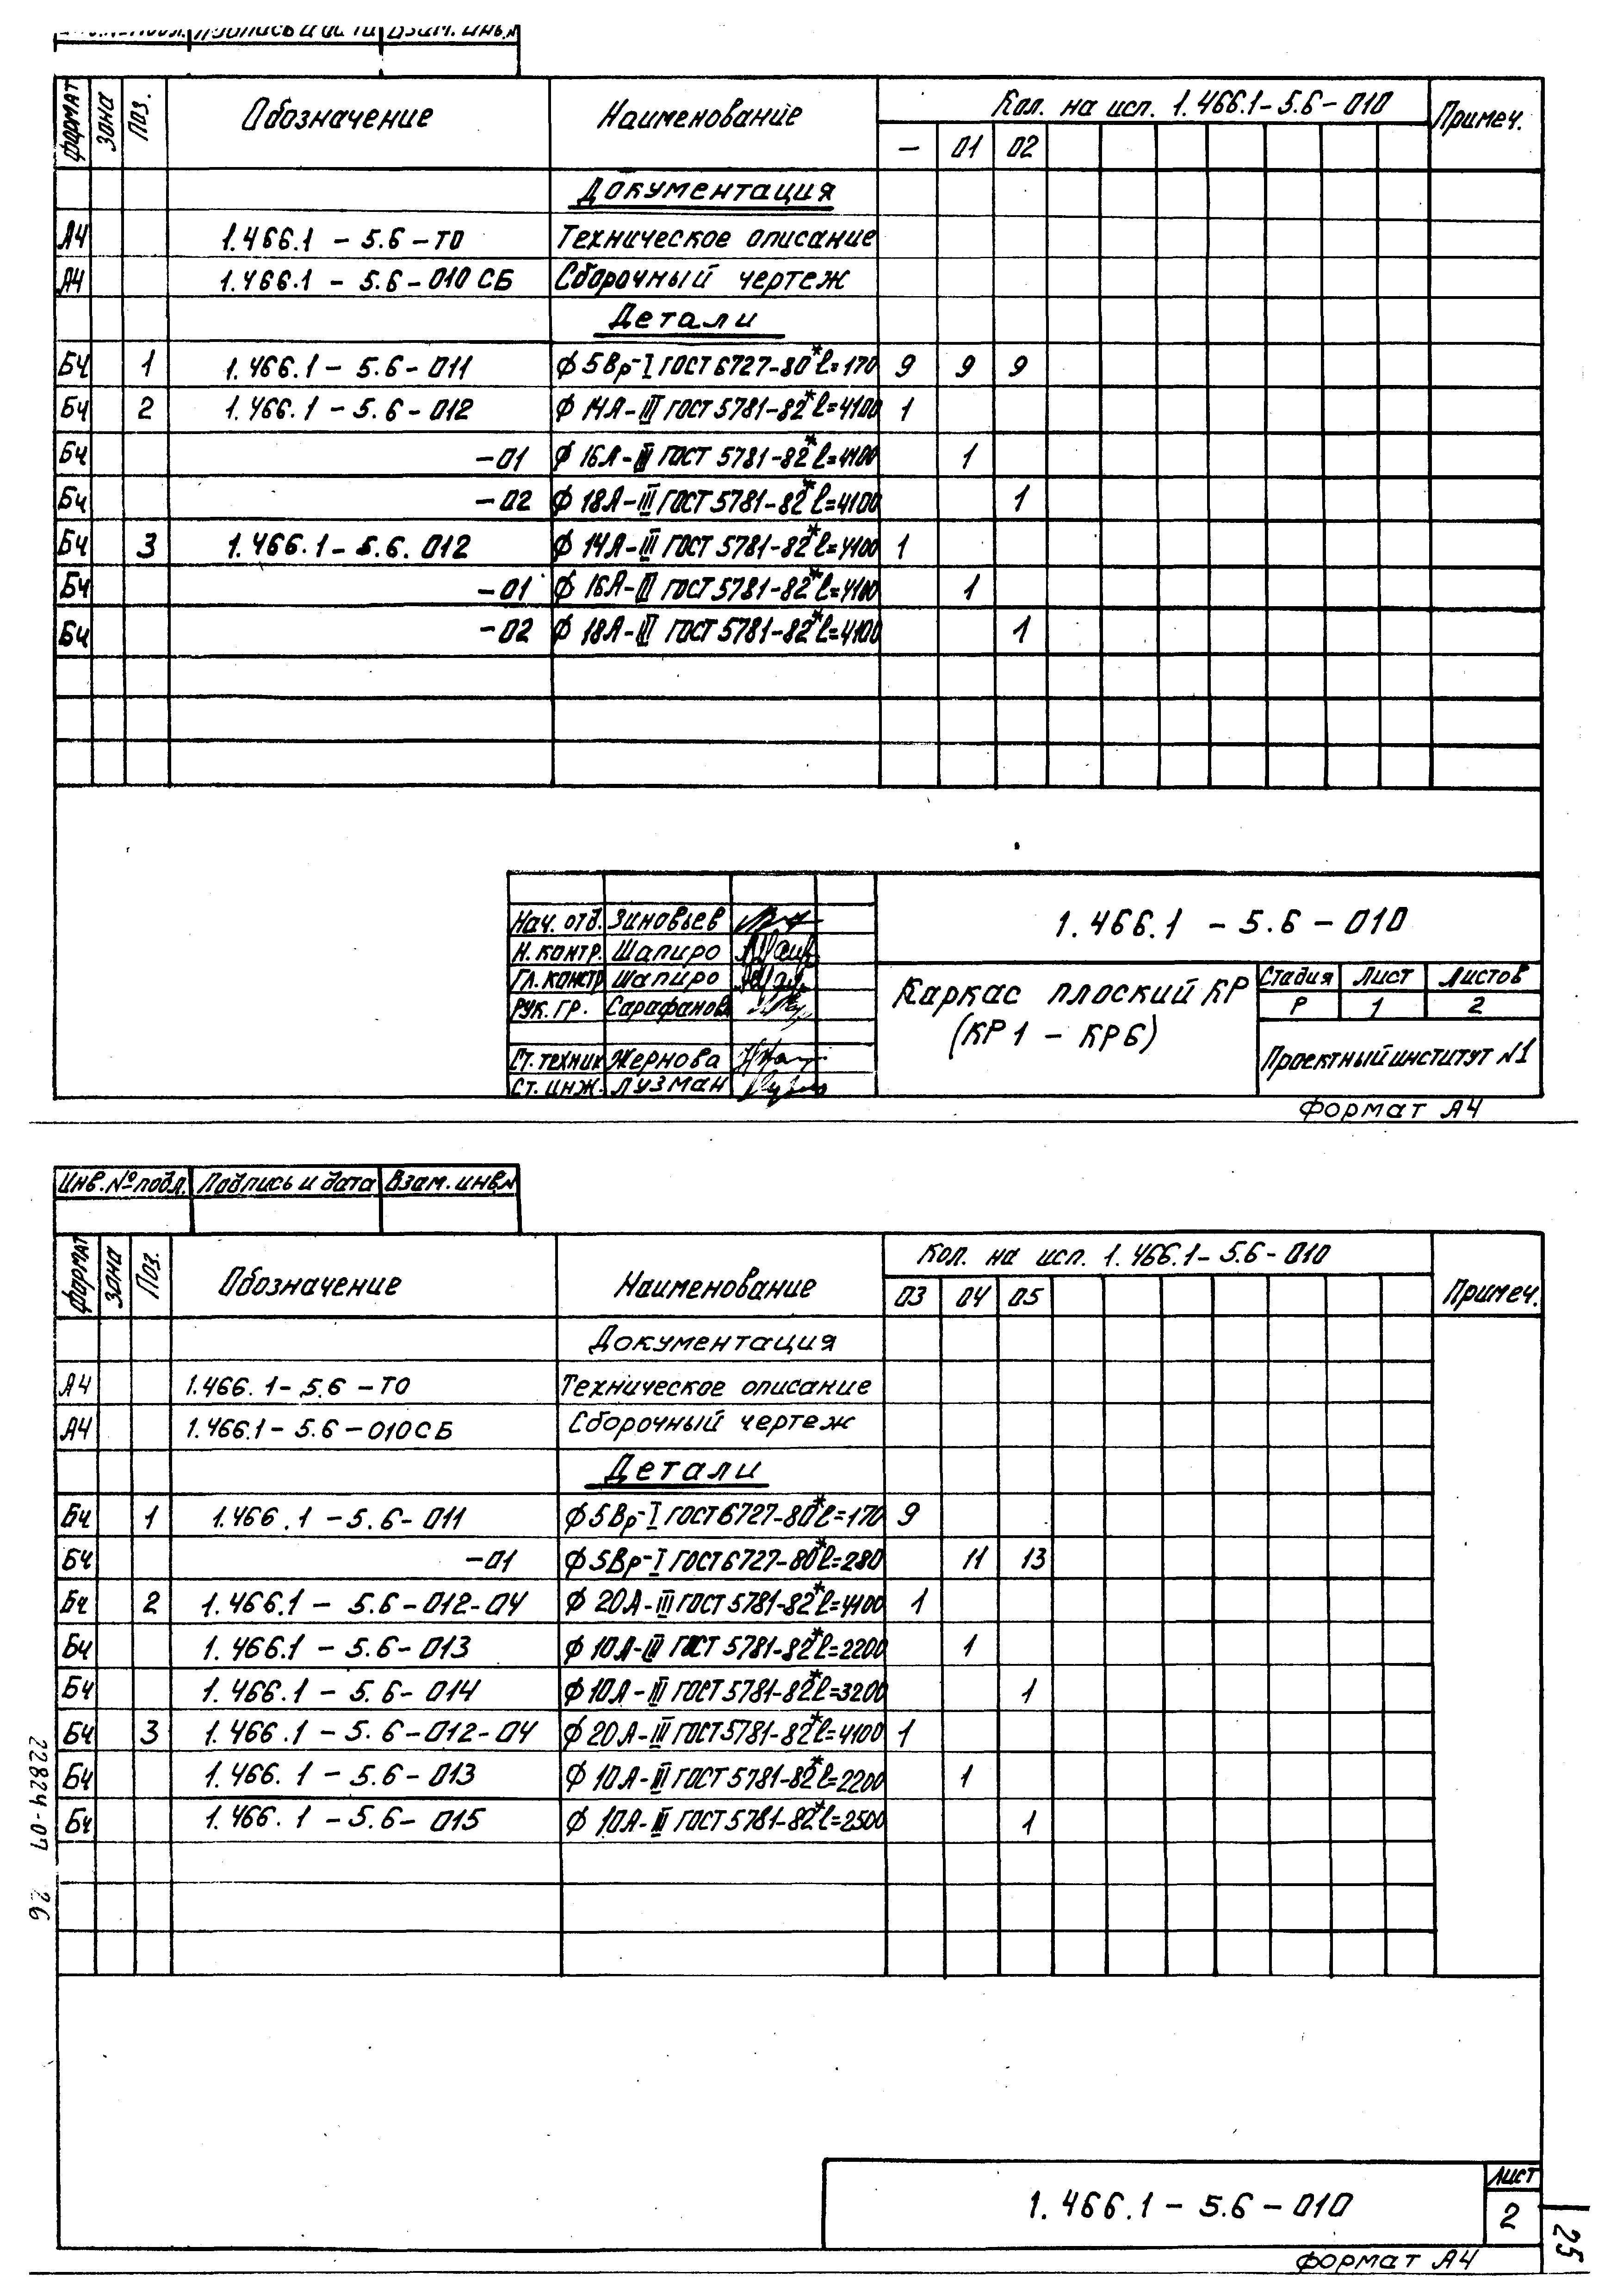 Формат Зона Поз. Обозначение Наименование Кол. на исп. 1.466.1-5.6-010 Примеч.
— 01 02
Документация
А4 1.466.1 - 5.6 - ТО Техническое описание
А4 1.466.1 - 5.6 - 010 СБ Сборочный чертеж
Детали
БЧ 1 1.466.1 - 5.6 - 011 ф 5Вр-I ГОСТ 6727-80* ℓ=170 9 9 9
БЧ 2 1.466.1 - 5.6 - 012 ф 14А-III ГОСТ 5781-82* ℓ=4100 1
БЧ -01 ф 16А-III ГОСТ 5781-82* ℓ=4100 1
БЧ -02 ф 18А-III ГОСТ 5781-82* ℓ=4100 1
БЧ 3 1.466.1 - 5.6. 012 ф 14А-III ГОСТ 5781-82* ℓ=4100 1
БЧ -01 ф 16А-III ГОСТ 5781-82* ℓ=4100 1
БЧ -02 ф 18А-III ГОСТ 5781-82* ℓ=4100 1
Нач. отд. Зиновьев
Н. контр. Шапиро
Гл. констр Шапиро
Рук. гр. Сарафанова
Ст. техник Жернова
Ст. инж. Лузман
1.466.1 - 5.6 - 010
Каркас плоский КР
(КР1 - КР6)
Стадия Лист Листов
Р 1 2
Проектный институт N1
Формат А4
Инв. № подл. Подпись и дата Взам. инв. N
Формат Зона Поз. Обозначение Наименование Кол. на исп. 1.466.1-5.6-010 Примеч.
03 04 05
Документация
А4 1.466.1 - 5.6 - ТО Техническое описание
А4 1.466.1 - 5.6 - 010 СБ Сборочный чертеж
Детали
БЧ 1 1.466.1 - 5.6 - 011 ф 5Вр-I ГОСТ 6727-80* ℓ=170 9
БЧ -01 ф 5Вр-I ГОСТ 6727-80* ℓ=280 11 13
БЧ 2 1.466.1 - 5.6 - 012-04 ф 20А-III ГОСТ 5781-82* ℓ=4100 1
БЧ 1.466.1 - 5.6 - 013 ф 10А-III ГОСТ 5781-82* ℓ=2200 1
БЧ 1.466.1 - 5.6 - 014 ф 10А-III ГОСТ 5781-82* ℓ=3200 1
БЧ 3 1.466.1 - 5.6 - 012-04 ф 20А-III ГОСТ 5781-82* ℓ=4100 1
БЧ 1.466.1 - 5.6 - 013 ф 10А-III ГОСТ 5781-82* ℓ=2200 1
БЧ 1.466.1 - 5.6 - 015 ф 10А-III ГОСТ 5781-82* ℓ=2500 1
22824-07 26
1.466.1 - 5.6 - 010
Лист
2
25
Формат А4